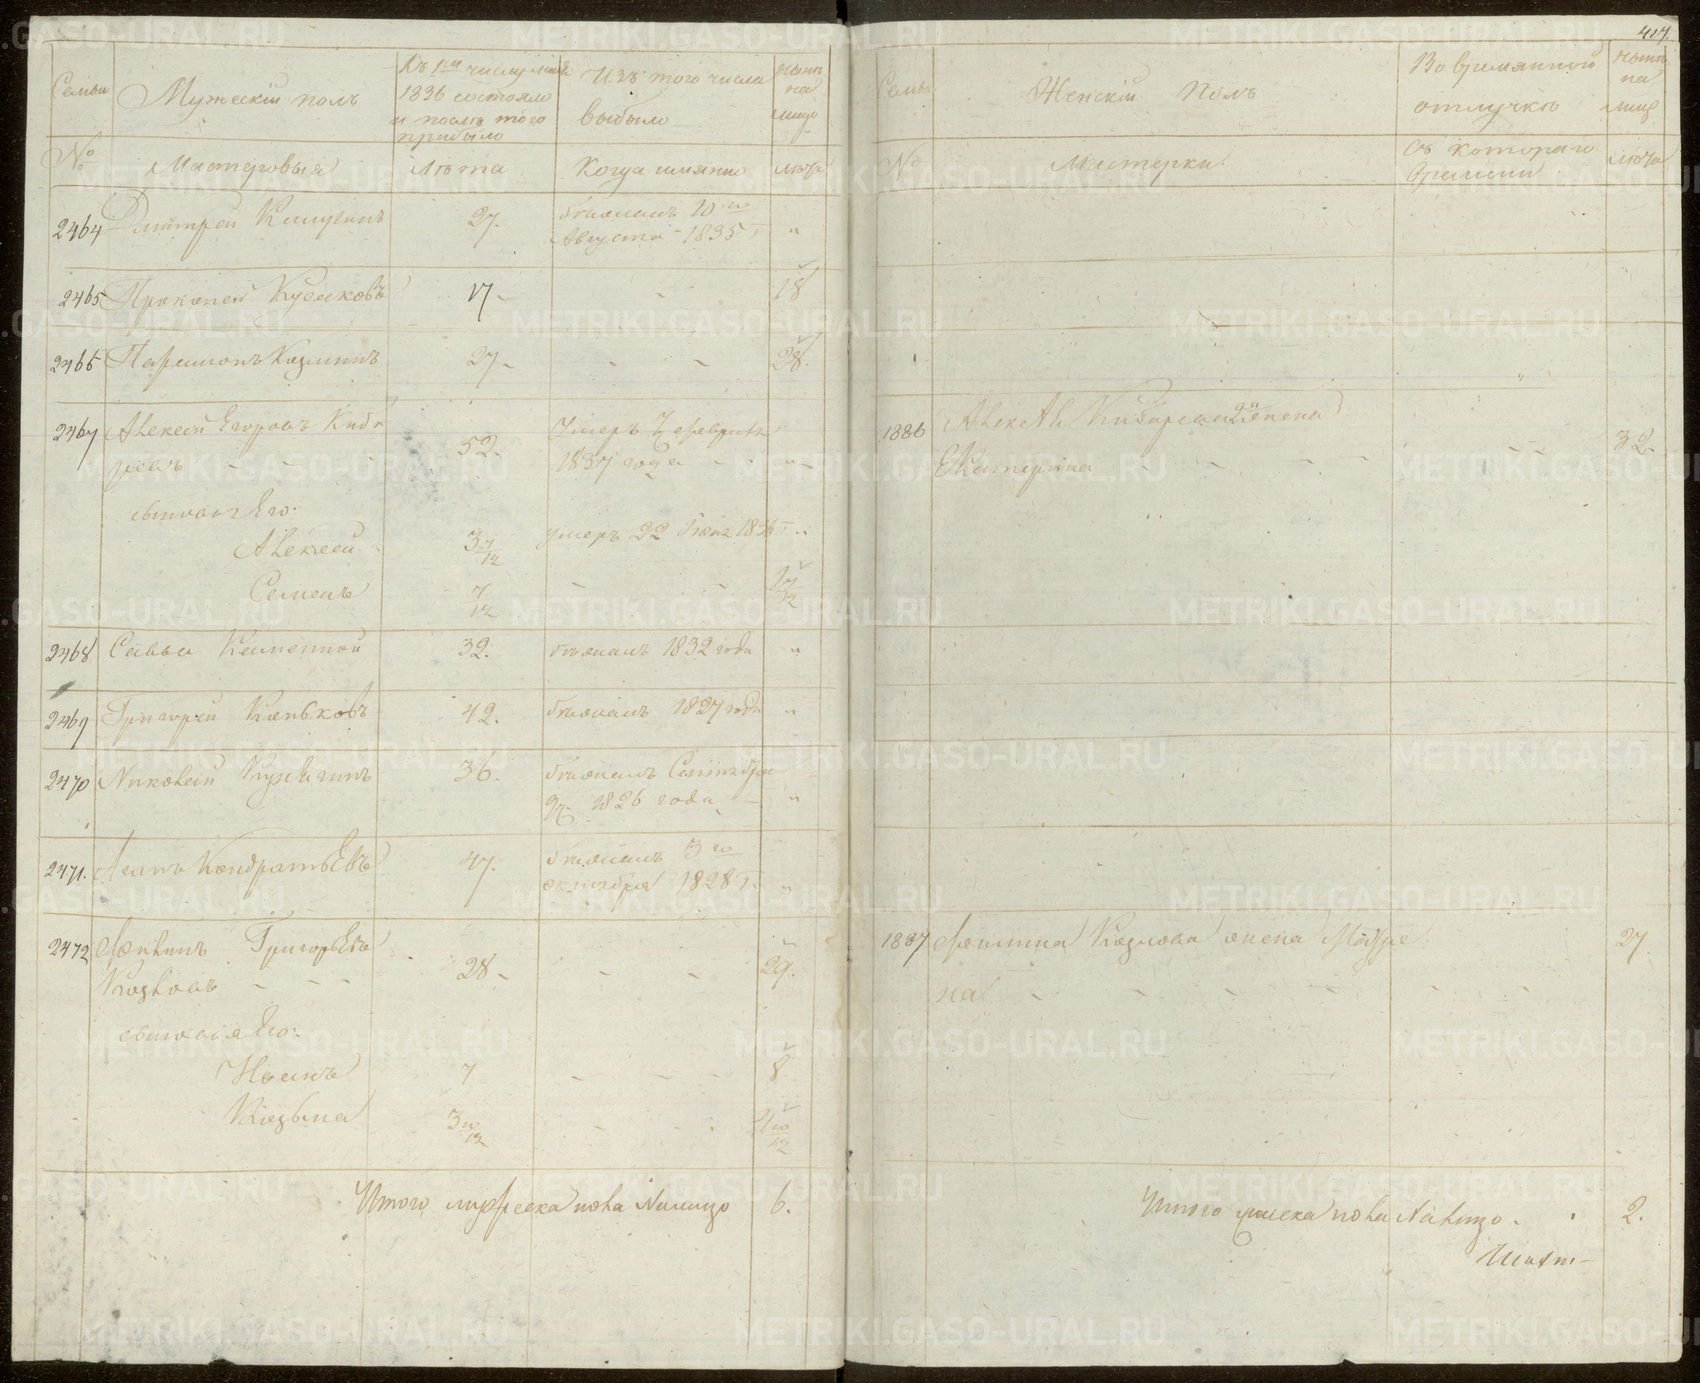 Семьи
Мужескiй полъ
Къ 1му числу маiя
1836 состояло
и послѣ того
прибыло
Изъ того числа
выбыло
нынѣ
на
лицо
№
Мастеровыя
лѣта
Когда имянно
лѣта
2464 Дмитрей 27.
бѣжалъ 10го
Августа 1835 г "
2465 Прокопей Кусековъ 17 - - 18
2466 Парамонъ Козминъ 27 - - - 28.
2467 Алексей Егоровъ Киби
ревъ - - 52.
Умеръ 7 февраля
1837 года - - "
сыновья Его:
Алексей 3 7/12 умеръ 22 1836 г "
Семенъ 7/12 - - 1 7/12
2468 Савва Каменной 32. бѣжалъ 1832 года "
2469 Григорей Коньковъ 42. бѣжалъ 1827 года "
2470 Николай Кулигинъ 36. бѣжалъ Сентября
9го 1826 года - "
2471. Кондратьевъ 47. бѣжалъ 3го
октября 1828 г. "
2472 Григорьевъ
Козловъ - - - 28 - - - 29.
сыновья Его:
7 - - - 8
Козьма 3 10/12 - - 4 10/12
Итого мужеска пола Налицо 6.
407.
Семьи
Женскiй Полъ
Во времянной
отлучкѣ
нынѣ
на
лице
№
Мастерки
Съ котораго
Времени
лѣта
1886 Алексѣя Кибирева 2я жена
Екатерина - - - - - - 32.
1887 Козлова жена Матре 27
на - - - - - - -
Итого женска пола Налицо . . 2.